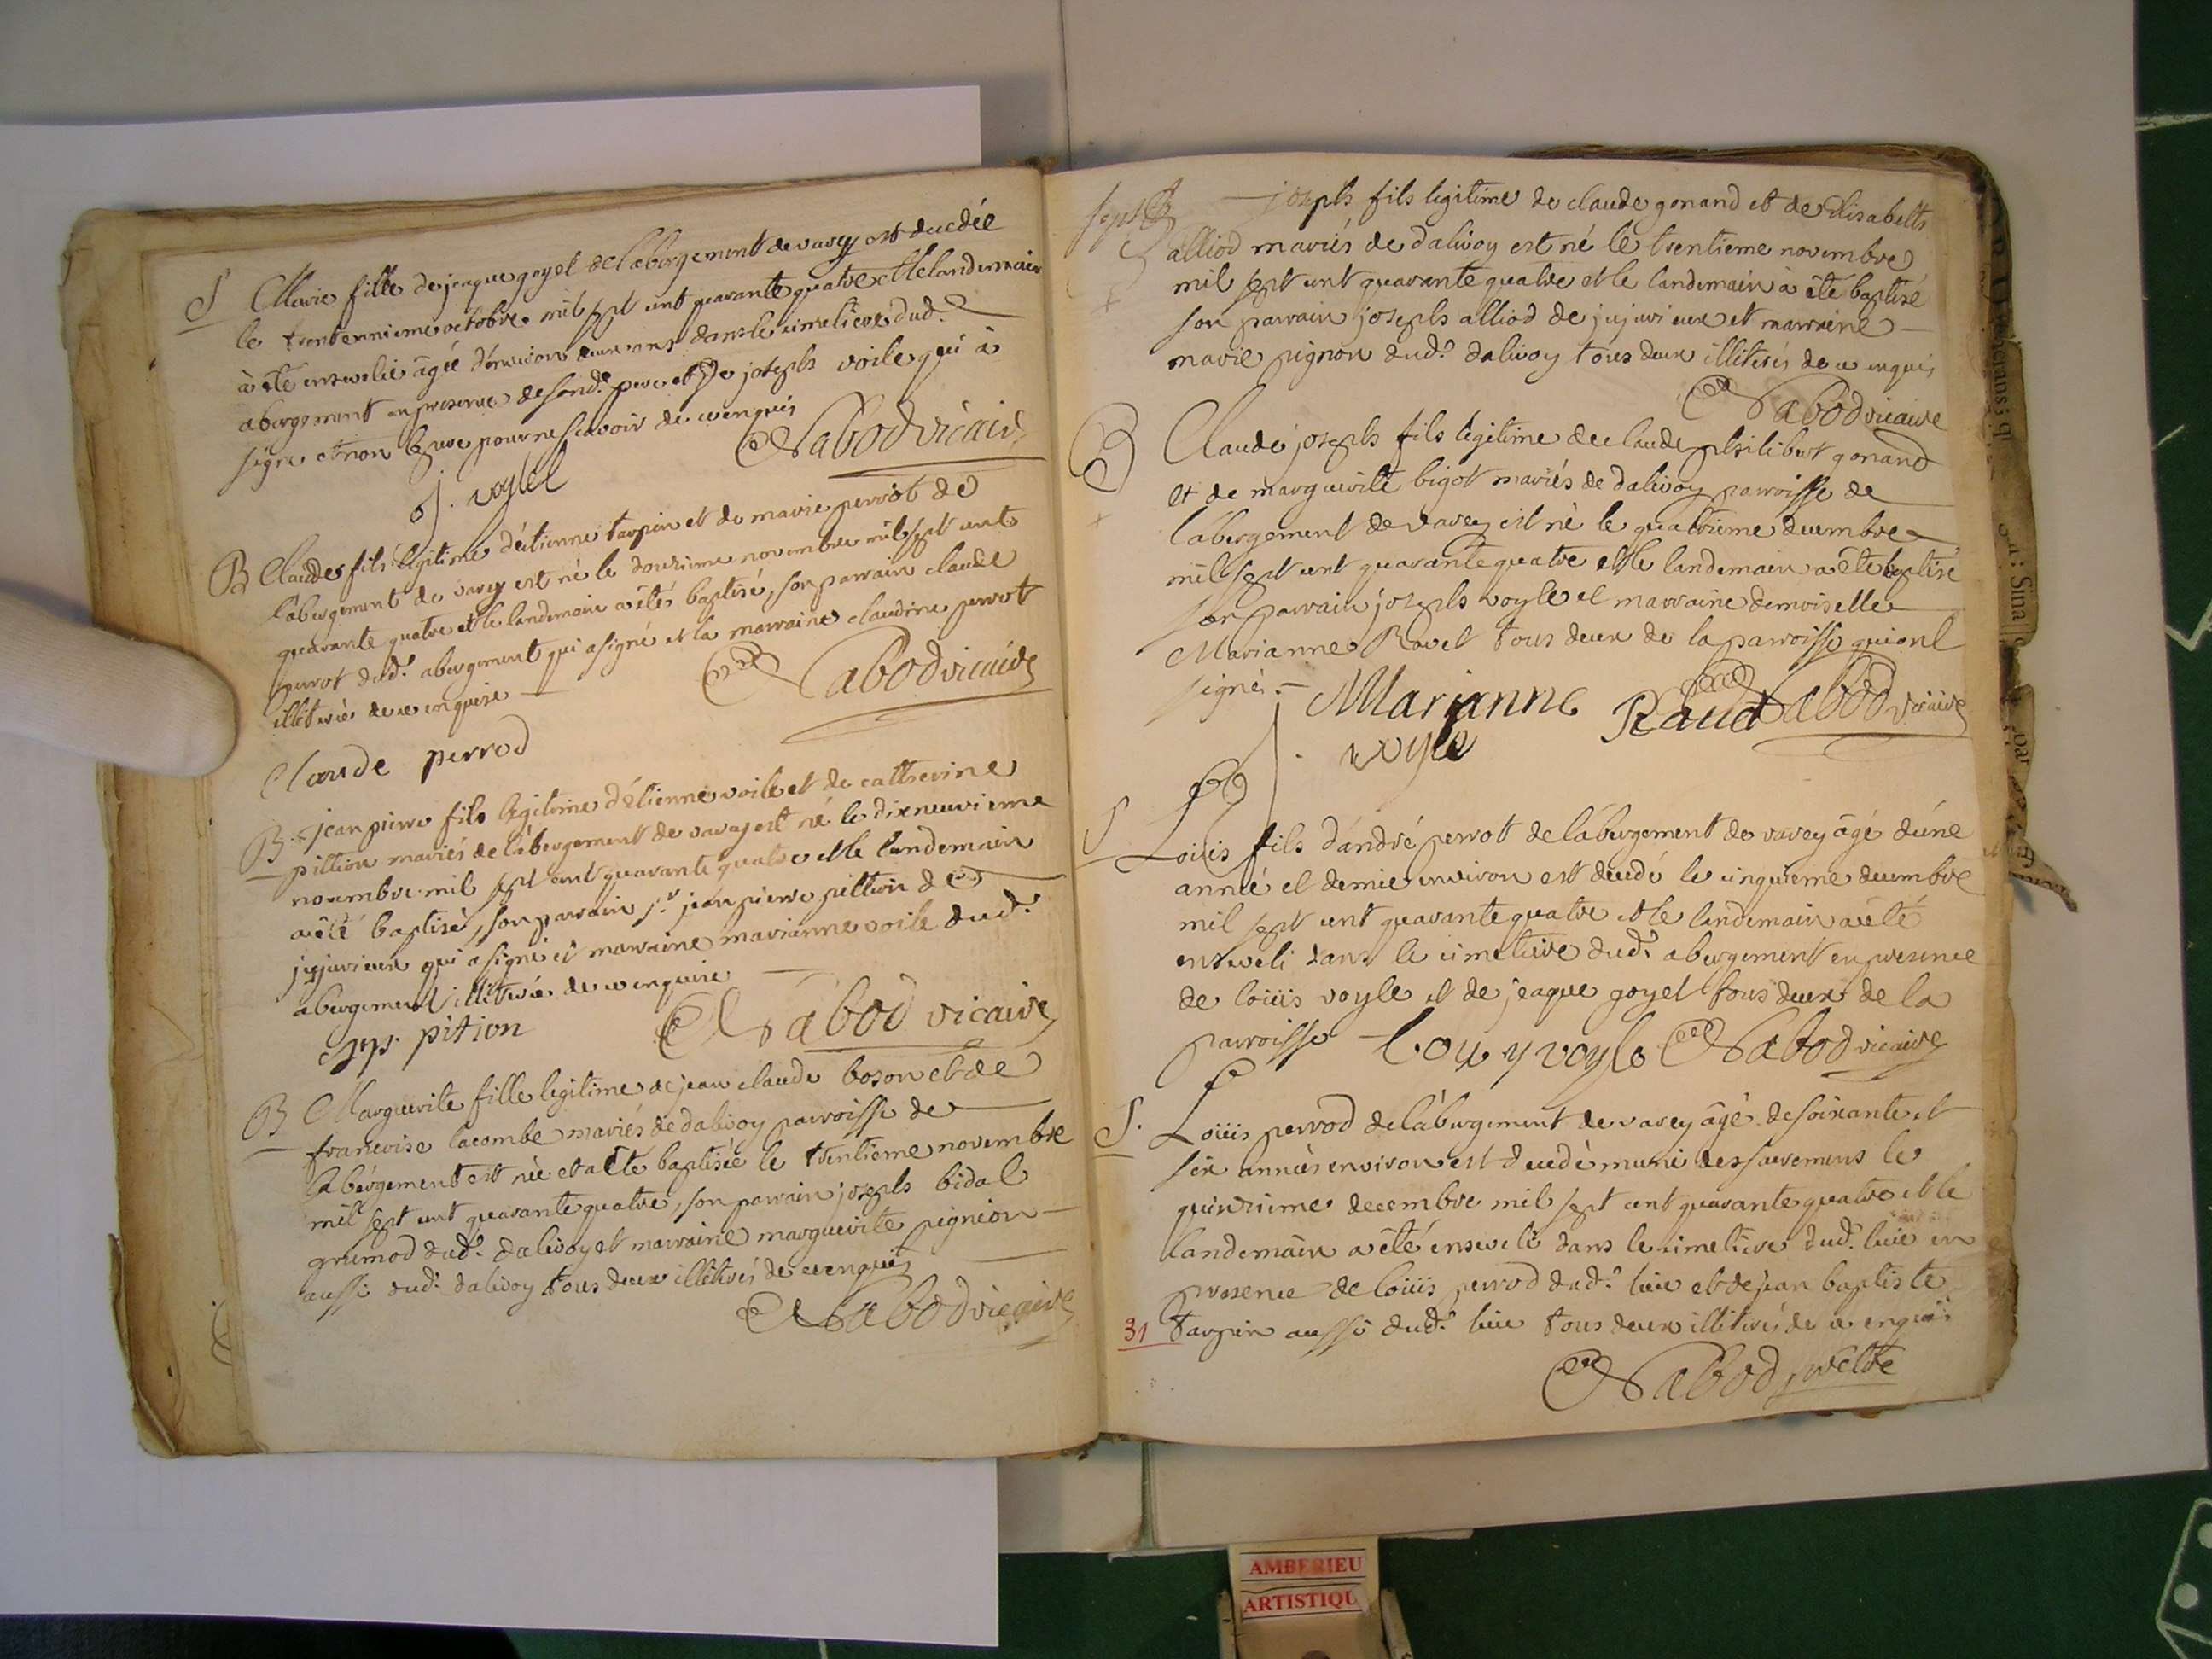 S Marie fille de jeaque goyet de l'abergement de varey est decedée
le trenteunieme octobre mil sept cent quarante quatre et le landemain
à été ensevelie âgée d'environ deux ans dans le cimetiere dud.
abergement en presence de sond. pere et de joseph voile qui à
signé et non le pere pour ne scavoir de ce enquis
Nabod vicaire
j. voyle
B Claude fils legitime d'étienne tarpin et de marie perrot de
l'abergement de varey est né le douzieme novembre mil sept cent
quarante quatre et le landemain a étés baptisé, son parrain claude
perrot dud. abergement qui a signé et la marraine claudine perrot
illiterée de ce enquise
Nabod vicaire
Claude perrod
B. jean pierre fils legitime d'étienne voile et de catherine
pittion mariés de l'abergement de varey est né le dixneuvieme
novembre mil sept cent quarante quatre et le landemain
a été baptisé, son parrain sr jean pierre pittion de
jujurieux qui a signé et marraine marianne voile dud.
abergement illiterée de ce enquise
jp. pition
Nabod vicaire
B Marguerite fille legitime de jean claude boson et de
francoise lacombe mariés de dalivoy parroisse de
l'abergement est née et a été baptisée le trentieme novembre
mil sept cent quarante quatre, son parrain joseph bidal
grumod dud. dalivoy et marraine marguerite pignion
aussi dud. dalivoy tous deux illiterés de ce enquis
Nabod vicaire
joseph fils legitime de claude gonand et de Elisabeth
alliod mariés de dalivoy est né le trentieme novembre
mil sept cent quarante quatre et le landemain à été baptisé
son parrain joseph alliod de jujurieux et marraine
marie pignon dud. dalivoy tous deux illiterés de ce enquis
Nabod vicaire
B Claude joseph fils legitime de claude philibert gonand
et de marguerite bigot mariés de dalivoy parroisse de
l'abergement de varey est né le quatrieme decembre
mil sept cent quarante quatre et le landemain a été baptisé
son parrain joseph voyle et marraine demoiselle
Marianne Ravet tous deux de la parroisse qui ont
signés.
Marianne Raud Nabod vicaire
j. voyle
S Loüis fils d'andré perrot de l'abergement de varey âgé d'une
année et demie environ est decedé le cinquieme decembre
mil sept cent quarante quatre et le landemain a été
enseveli dans le cimetiere dud. abergement en presence
de loüis voyle et de jeaque goyet tous deux de la
parroisse Louy voyle Nabod vicaire
S. Loüis perrod de l'abergement de varey âgé de soixante et
six années environ est decedé muni des sacremens le
quinzieme decembre mil sept cent quarante quatre et le
landemain a été enseveli dans le cimetiere dud. lieu en
presence de loüis perrod dud. lieu et de jean baptiste
31 tarpin aussi dud. lieu tous deux illiterés de ce enquis
Nabod prêtre
AMBERIEU
ARTISTIQU